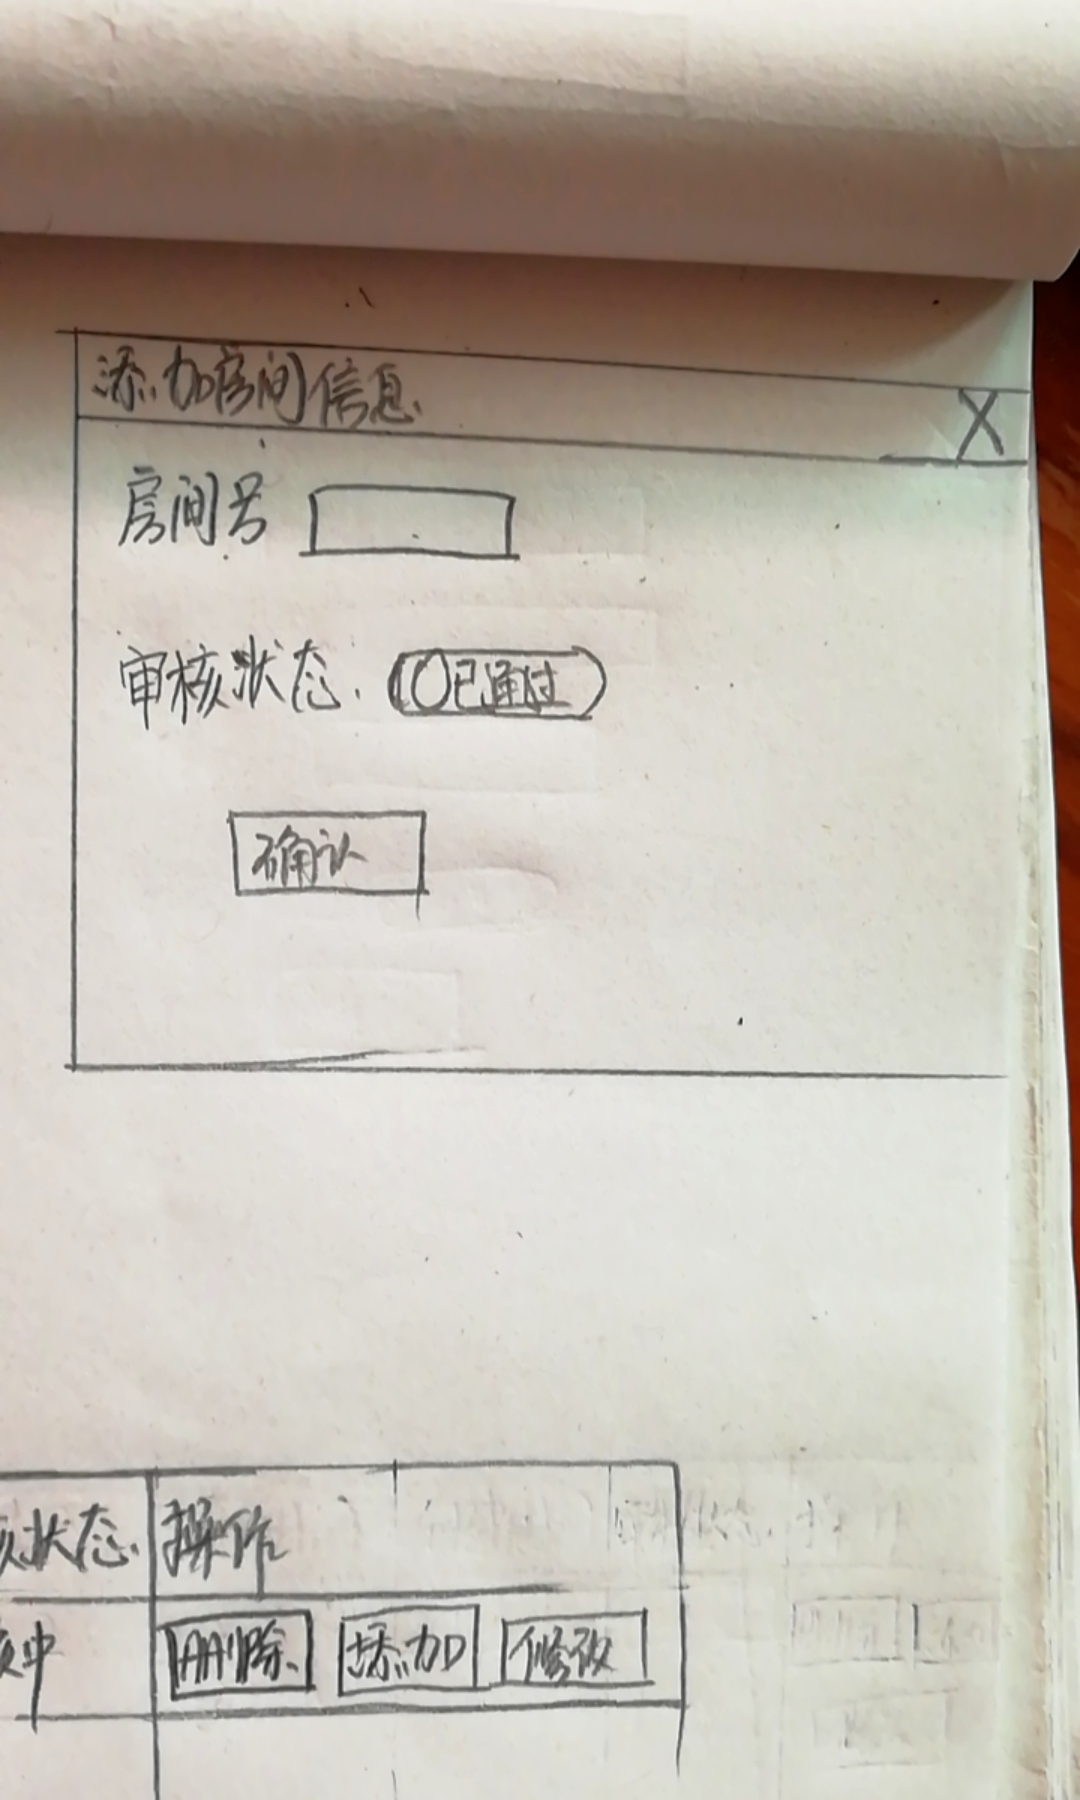 添加房间信息 X
房间号
审核状态 已通过
确认
核状态 操作
核中 删除 添加 修改